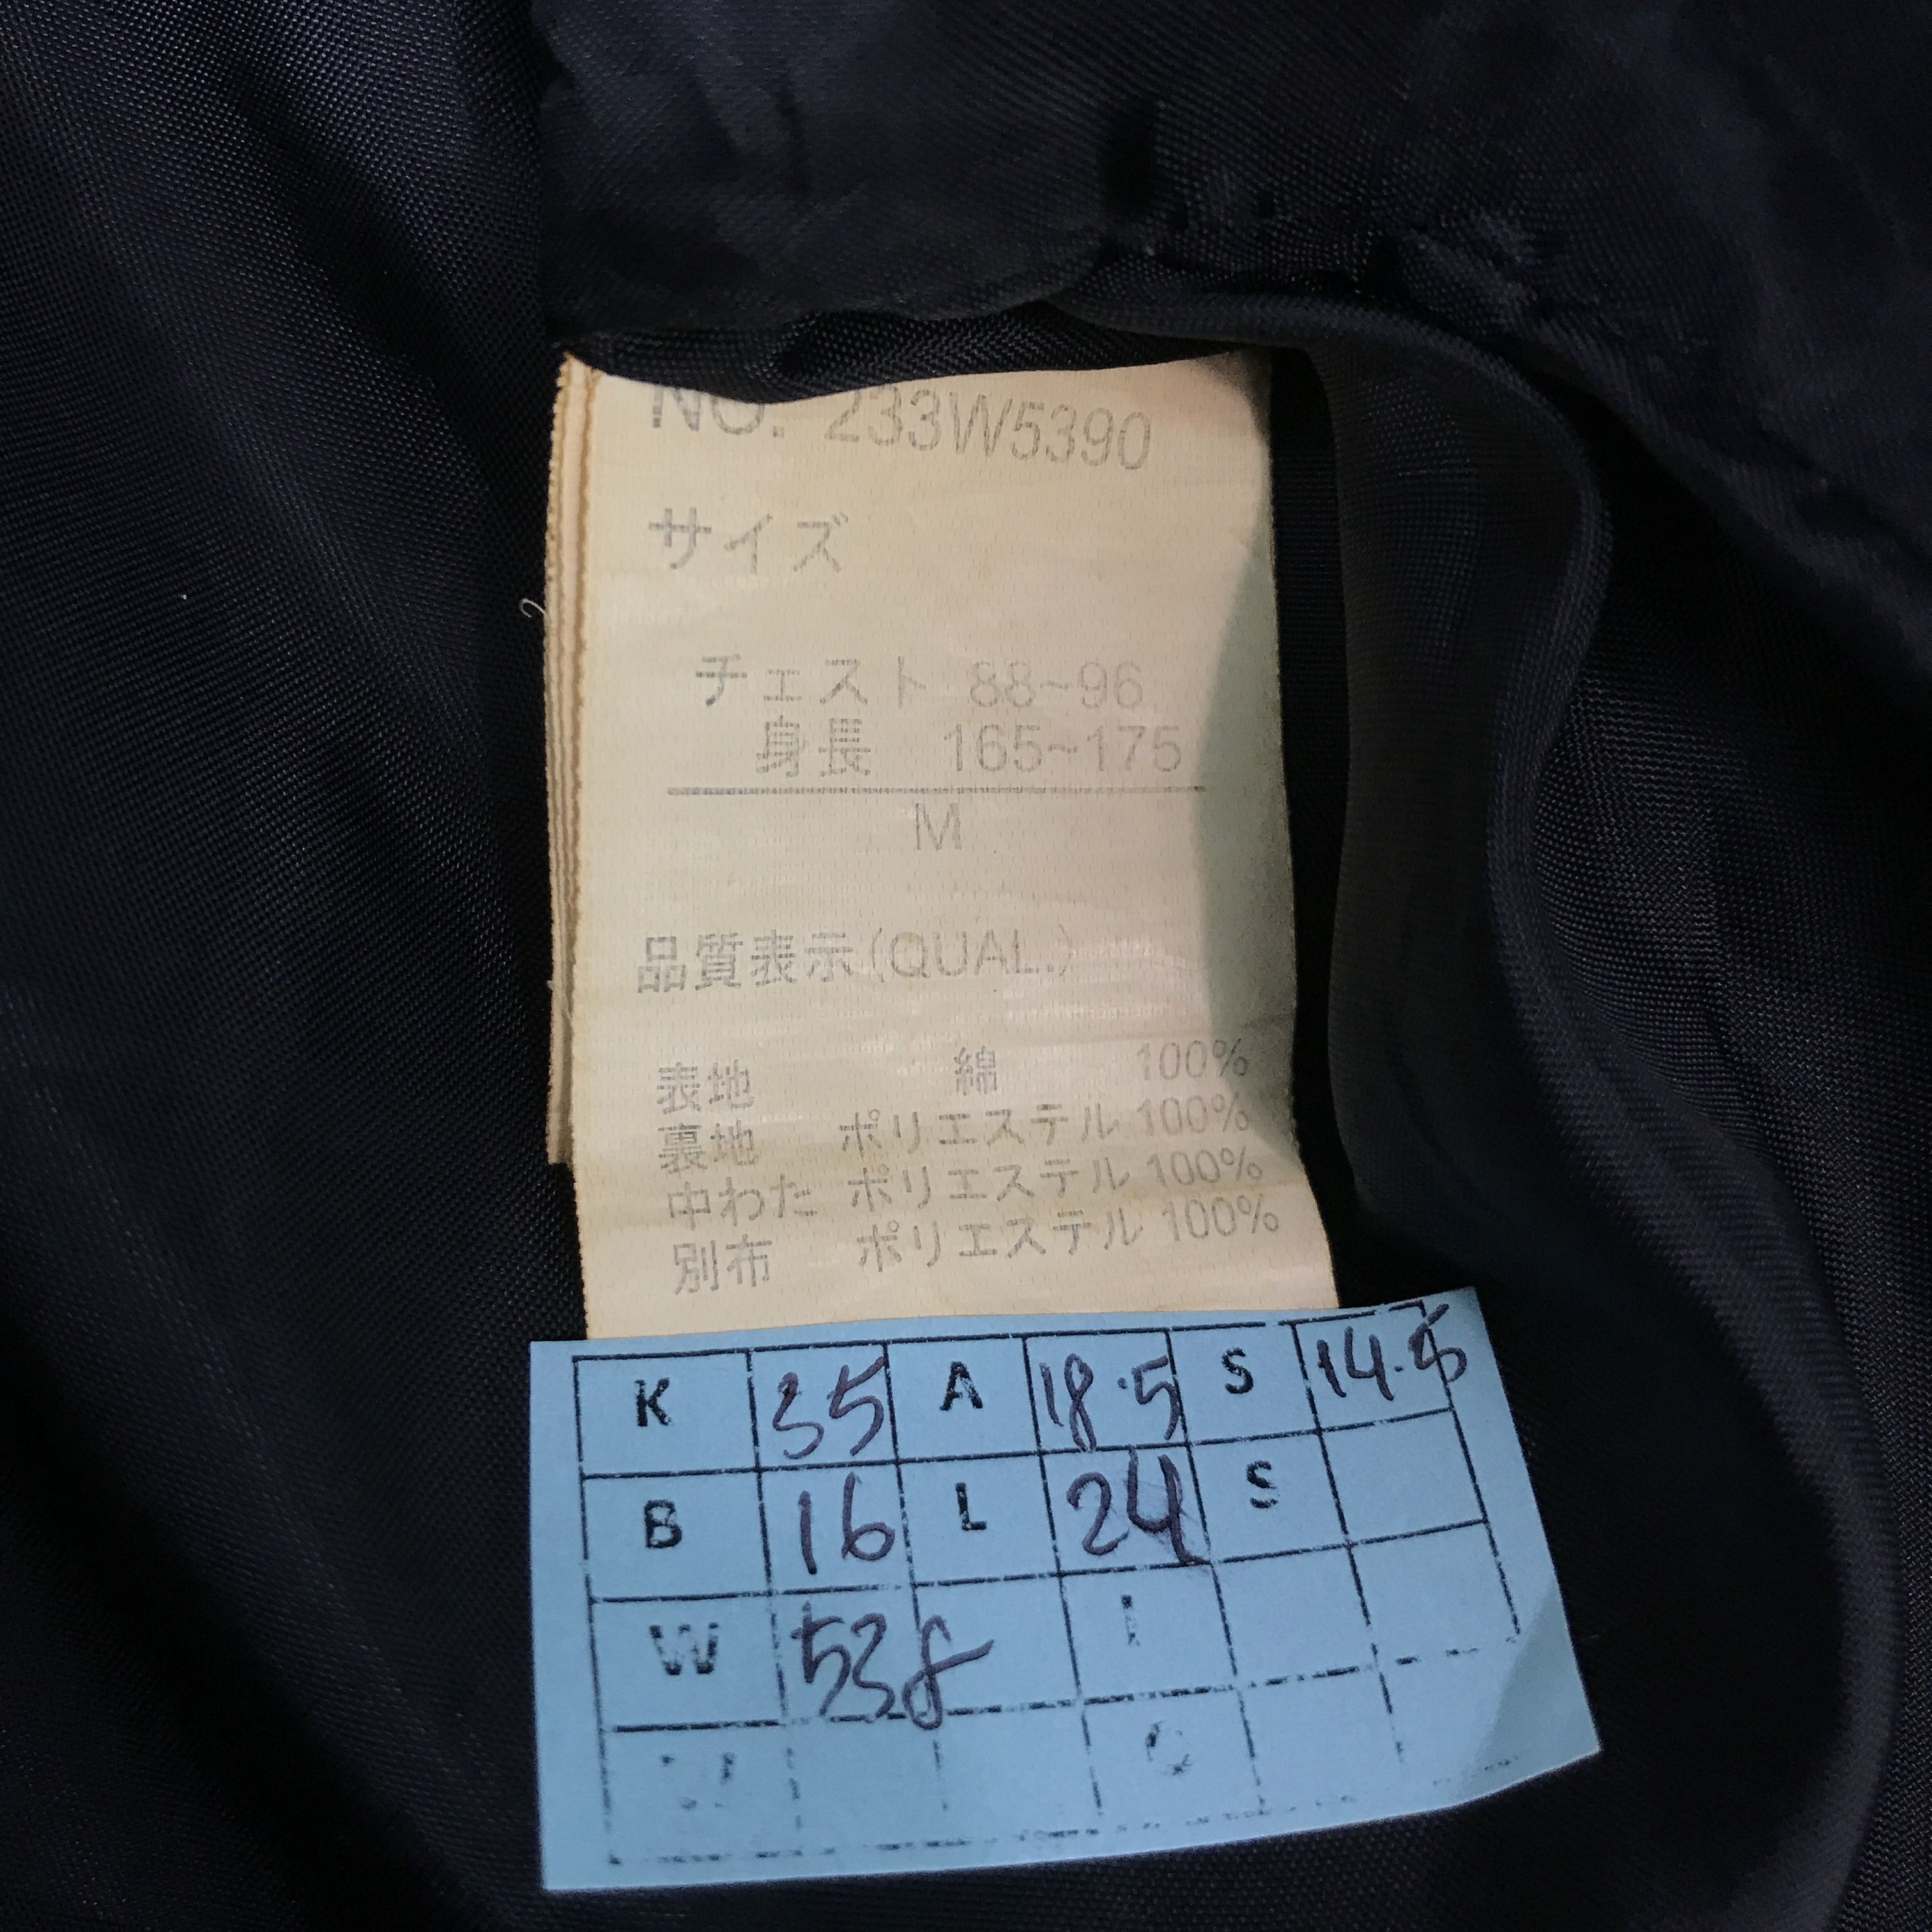 NO. 233W5390
サイズ
チェスト 88~96
身長 165~175
M
品質表示(QUAL.)
表地 綿 100%
裏地 ポリエステル 100%
中わた ポリエステル 100%
別布 ポリエステル 100%
K 35 A 18.5 S 14.5
B 16 L 24 S
W 538 I